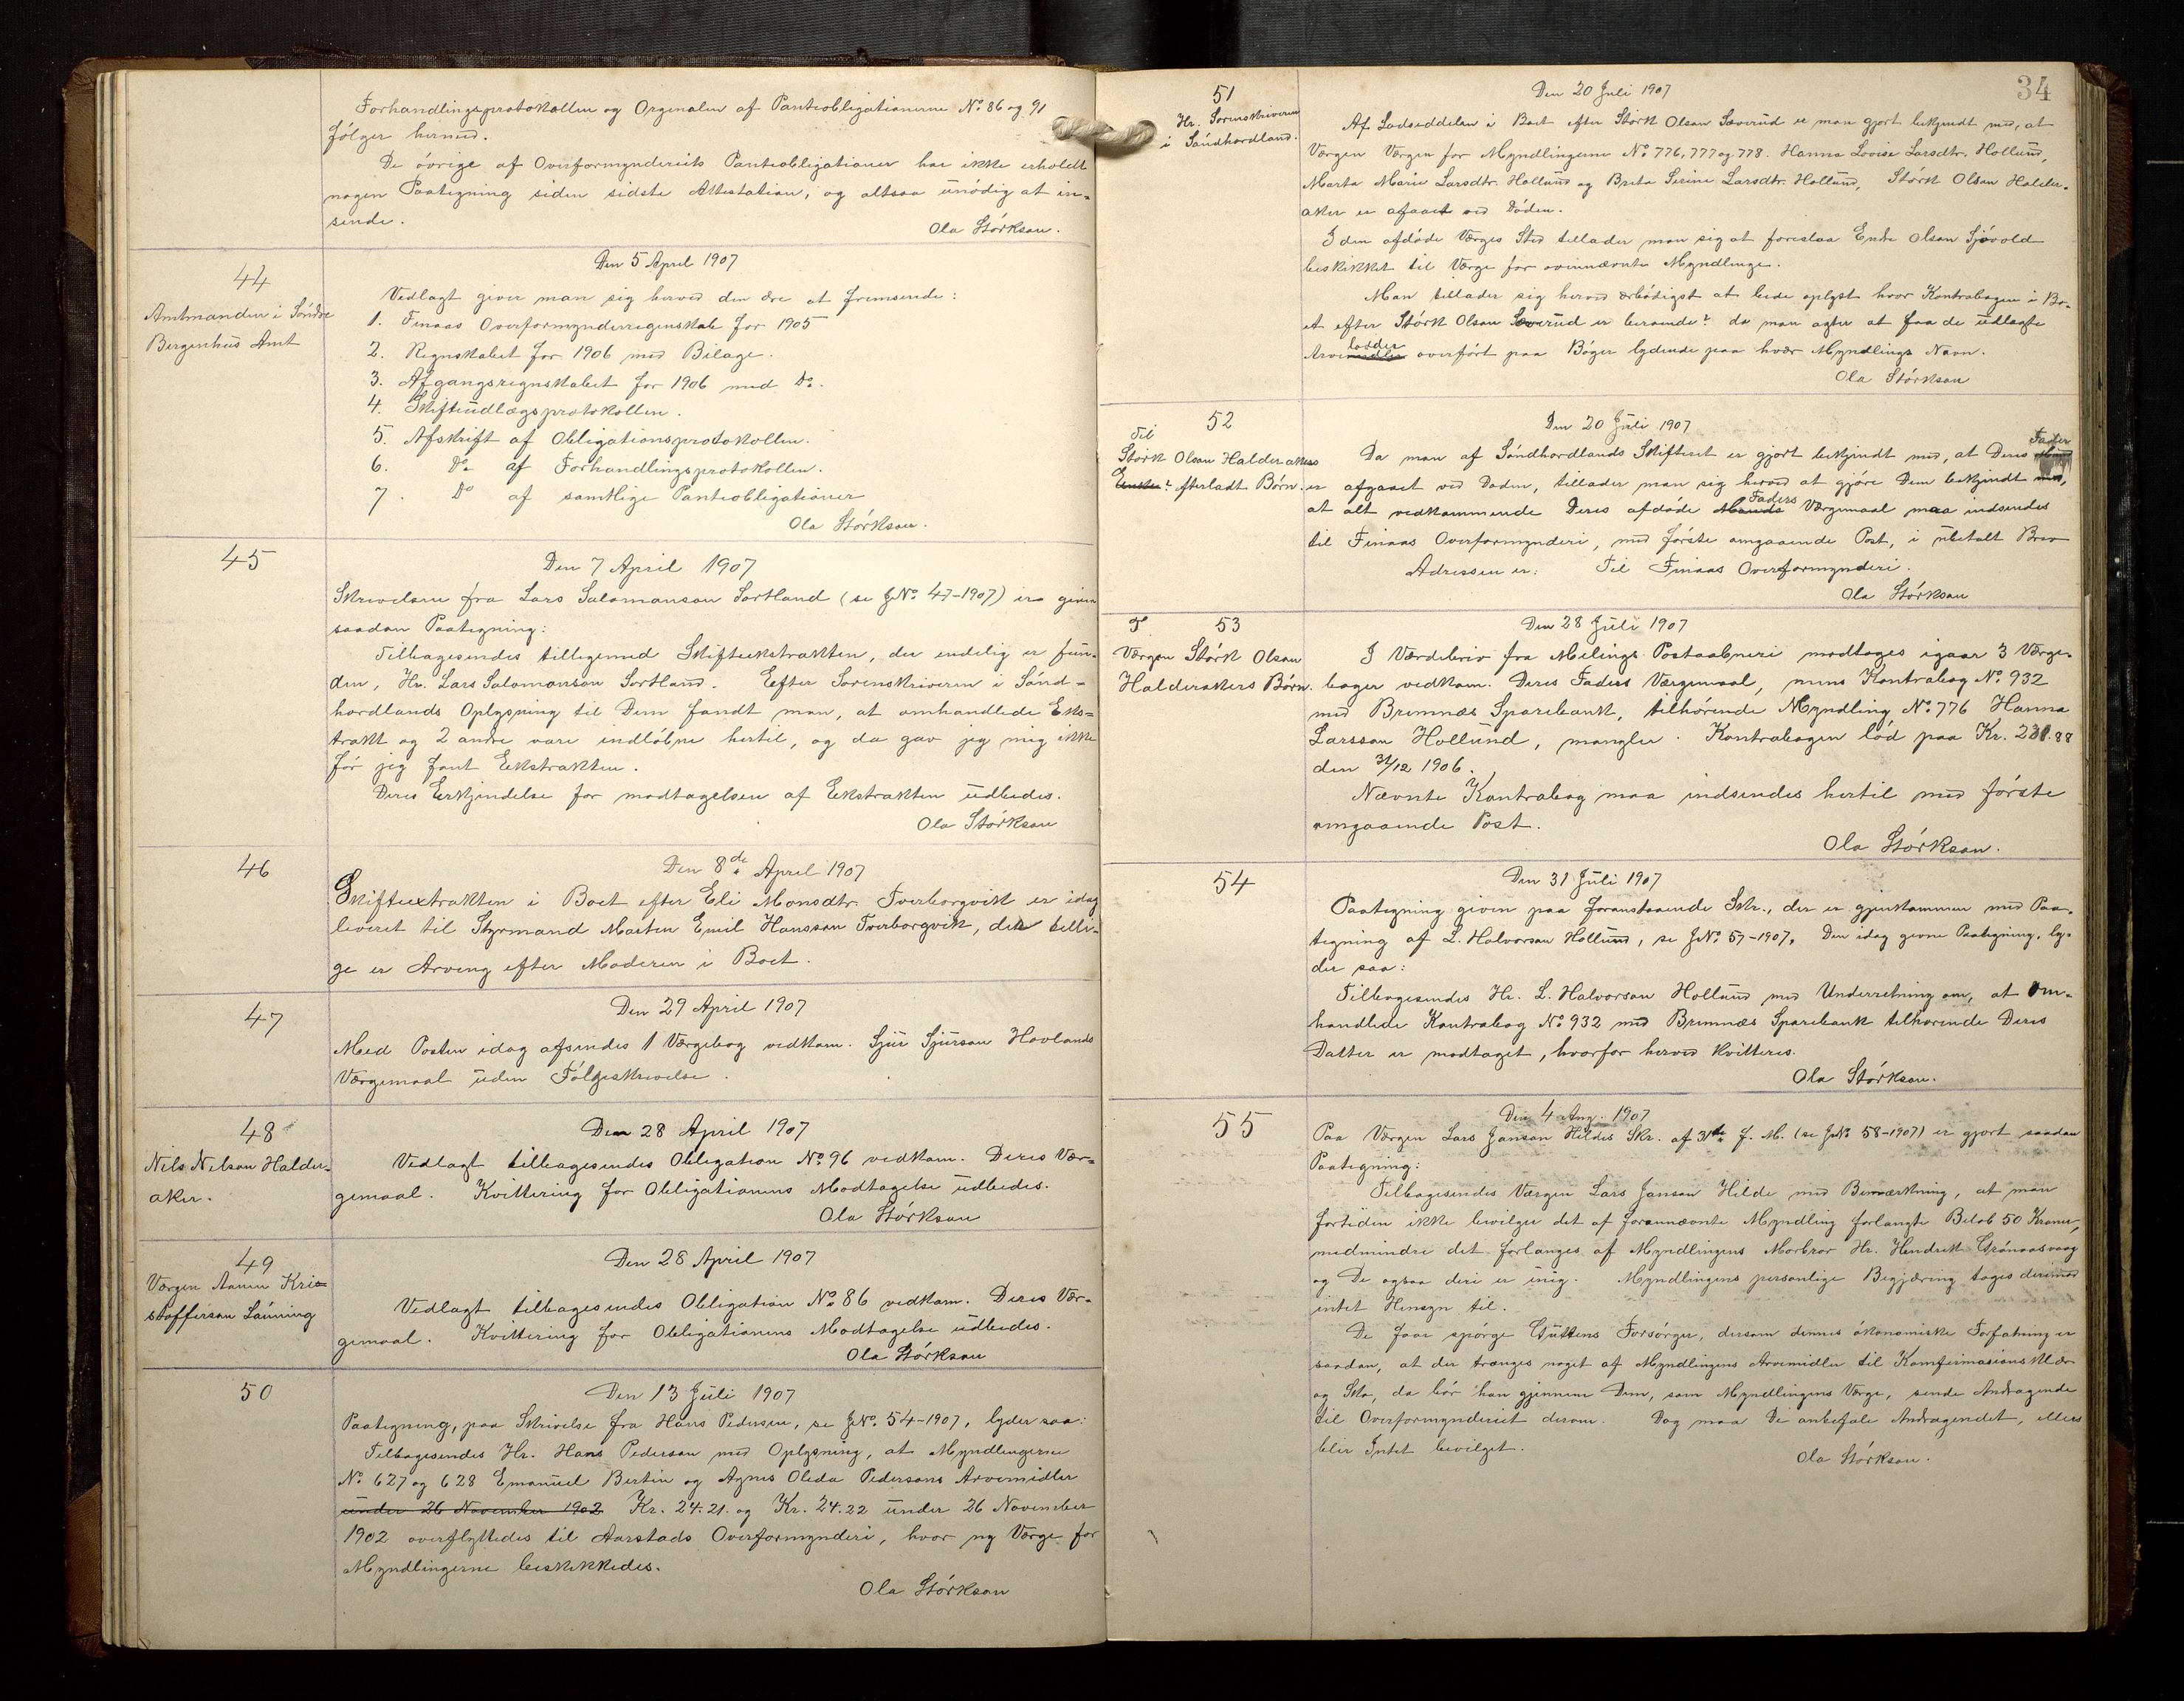 Forhandlingsprotokollen og Orginalen af Panteobligationerne No. 86 og 91
følger hermed.
De övrige af Overformynderiets Panteobligationer har ikke erholdt
nogen Paategning siden sidste Attestation, og altsaa unödig at in-
sende.
Ola Störkson.
44
Amtmanden i Söndre
Bergenhus Amt
Den 5 April 1907
Vedlagt giver man sig herved den ære at fremsende:
1. Finaas Overformynderregnskab for 1905
2. Regnskabet for 1906 med Bilage.
3. Afgangsregnskabet for 1906 med Do.
4. Skifteudlægsprotokollen.
5. Afskrift af Obligationsprotokollen.
6. Do. af Forhandlingsprotokollen.
7. Do af samtlige Panteobligationer
Ola Störkson.
45
Den 7 April 1907
Skrivelsen fra Lars Salomonson Sortland (se JNo. 47-1907) er given
saadan Paategning:
Tilbagesendes tilligemed Skifteekstrakten, der endelig er fun-
den, Hr. Lars Salomonson Sortland. Eefter Sorenskriveren i Sönd-
hordlands Oplysning til Dem fandt man, at omhandlede Eks-
trakt og 2 andre vare indlöbne hertil, og da gav jeg mig ikke
för jeg fant Eekstrakten.
Deres Eerkjendelse for modtagelsen af Eekstrakten udbedes.
Ola Störkson
46
Den 8de April 1907
Skifteextrakten i Boet efter Eli Monsdtr. Tverborgvik er idag
leveret til Styrmand Marten Emil Hansson Tverborgvik, der tilli-
ge er Arving efter Moderen i Boet.
47
Den 29 April 1907
Med Posten idag afsendes 1 Værgebog vedkom. Sjur Sjurson Hovlands
Værgemaal uden Fölgeskrivelse.
48
Nils Nelson Halder-
aker.
Den 28 April 1907
Vedlagt tilbagesendes Obligation No. 96 vedkom. Deres Vær-
gemaal. Kvittering for Obligationens Modtagelse udbedes.
Ola Störkson
49
Værgen Aamen Kri-
stofferson Löuning
Den 28 April 1907
Vedlagt tilbagesendes Obligation No. 86 vedkom. Deres Vær-
gemaal. Kvittering for Obligationens Modtagelse udbedes.
Ola Störkson
50
Den 13 Juli 1907
Paategning, paa Skrivelse fra Hans Pederson, se JNo. 54-1907, lyder saa:
Tilbagesendes Hr. Hans Pederson med Oplysning, at Myndlingerne
No. 627 og 628 Emanuel Bertin og Agnes Oleda Pedersons Arvemidler
under 26 November 1902 Kr. 24.21. og Kr. 24.22 under 26 November
1902 overflyttedes til Aarstads Overformynderi, hvor ny Værge for
Myndlingerne beskikkedes.
Ola Störkson
34
51
Hr. Sorenskriveren
i Söndhordland.
Den 20 Juli 1907
Af Lodseddelen i Boet efter Störk Olson Sæverud er man gjort bekjendt med, at
Værgen Værgen for Myndlingerne No. 776, 777 og 778. Hanna Lovise Larsdtr. Hollund,
Marta Marie Larsdtr. Hollund og Brita Serine Larsdtr. Hollund, Störk Olson Halder-
aker er afgaaet ved Döden.
I den afdöde Værges Sted tillader man sig at foreslaa Endre Olson Sjövold
beskikket til Værge for ovennævnte Myndlinge.
Man tillader sig herved ærbödigst at bede oplyst hvor Kontrabogen i Bo-
et efter Störk Olson Sæverud er beroende? da man agter at faa de udlagte
lodder
Arvemidler overfört paa Böger lydende paa hver Myndlings Navn.
Ola Störkson
52
Til
Störk Olson Halderakers
Enke? Efterladt Börn.
Den 20 Juli 1907
Fader
Da man af Söndhordlands Skifteret er gjort bekjendt med, at Deres
er afgaaet ved Doden, tillader man sig herved at gjöre Dem bekjendt med,
Faders
at alt vedkommende Deres afdöde Mands Værgemaal maa indsendes
til Finaas Overformynderi, med förste omgaaende Post, i ubetalt Brev
Adressen er: Til Finaas Overformynderi.
Ola Störkson
T. 53
Værgen Störk Olson
Halderakers Börn.
Den 28 Juli 1907
I Værdibrev fra Mælings Postaabneri modtoges igaar 3 Værge-
böger vedkom. Deres Faders Værgemaal, mens Kontrabog No. 932
med Bremnæs Sparebank, tilhörende Myndling No. 776 Hanna
Larsson Hollund, mangler. Kontrabogen löd paa Kr. 231.88
den 31/12 1906.
Nævnte Kontrabog maa indsendes hertil med förste
omgaaende Post.
Ola Störkson.
54
Den 31 Juli 1907
Paategning given paa foranstaaende Skr., der er gjenkommen med Paa-
tegning af L. Halvorson Hollund, se JNo. 57-1907. Den idag givne Paategning, ly-
der saa:
Tilbagesendes Hr. L. Halvorson Hollund med Underretning om, at om-
handlede Kontrabog No. 932 med Bremnæs Sparebank tilhörende Deres
Datter er modtaget, hvorfor herved kvitteres.
Ola Störkson.
55
Den 4 Aug. 1907
Paa Værgen Lars Janson Hildes Skr. af 31te f. M. (se JNo. 58-1907) er gjort saadan
Paategning:
Tilbagesendes Værgen Lars Janson Hilde med Bemærkning, at man
fortiden ikke bevilger det af forannævnte Myndling forlangte Belöb 50 Kroner,
medmindre det forlanges af Myndlingens Morbror Hr. Hendrik Grönaasvaag
og De ogsaa deri er enig. Myndlingens personlige Begjæring tages derimod
intet Hensyn til.
De faar spörge Guttens Forsörger, dersom dennes ökonomiske Forfatning er
saadan, at der trænges noget af Myndlingens Arvemidler til Komfirmasionsklær
og Sko, da bör han gjennem Dem, som Myndlingens Værge, sende Andragende
til Overformynderiet derom. Dog maa De anbefale Andragendet, ellers
blir Intet bevilget.
Ola Störkson.